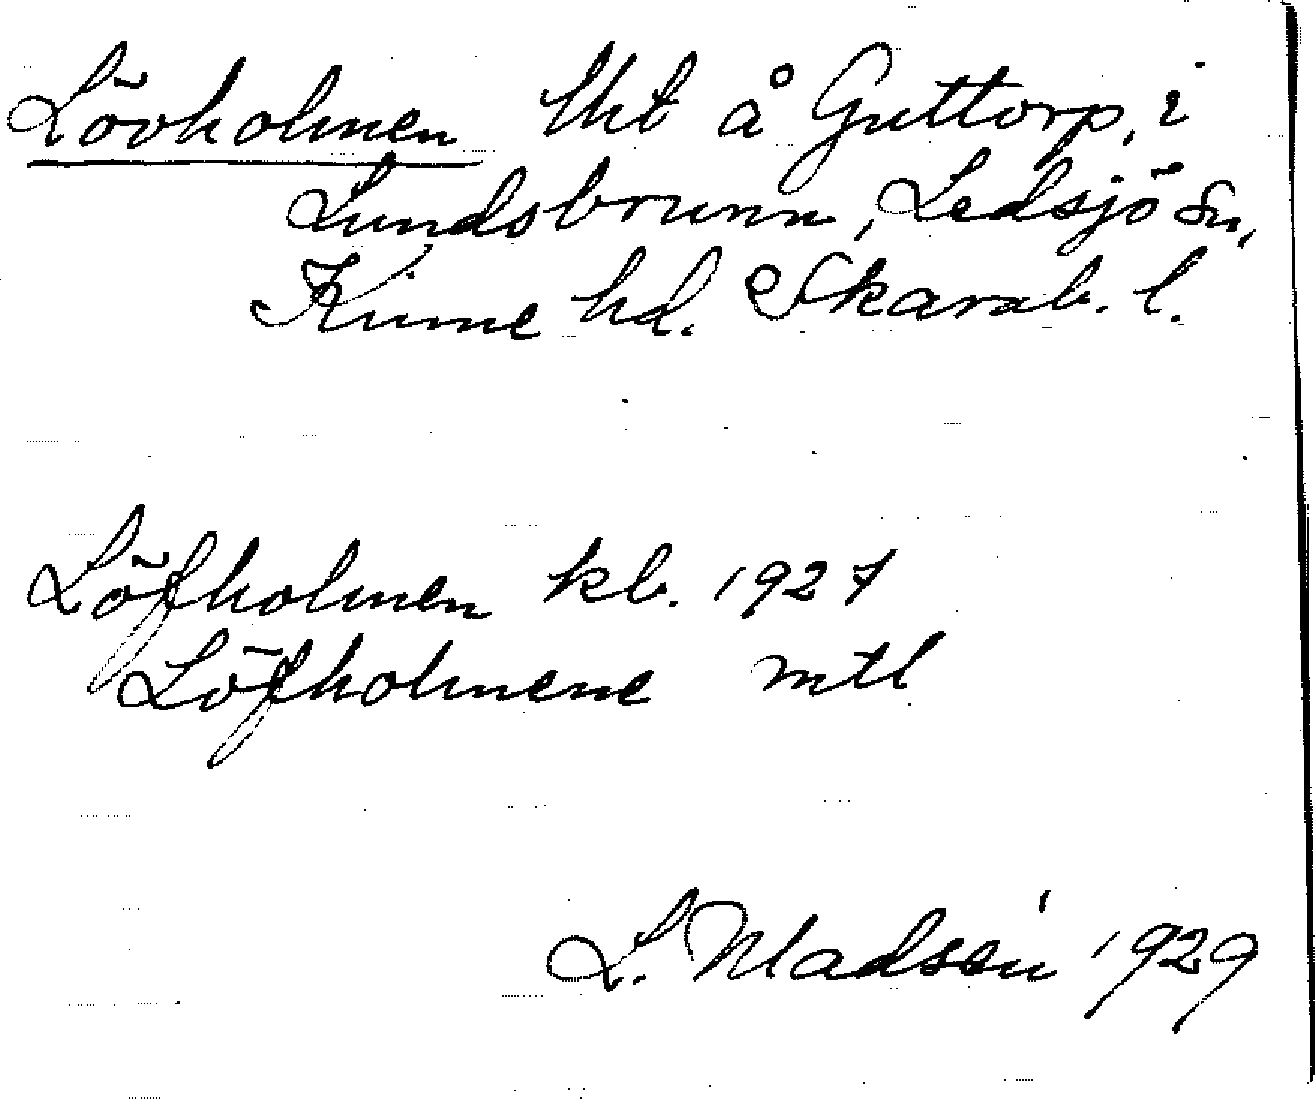 Lövholmen lht å Guttorp, i
Lundsbrunn, Ledsjö sn,
Kinne hd. Skarab. l.
Löfholmen kb. 1927
Löfholmene mtl
L. Madsén 1929